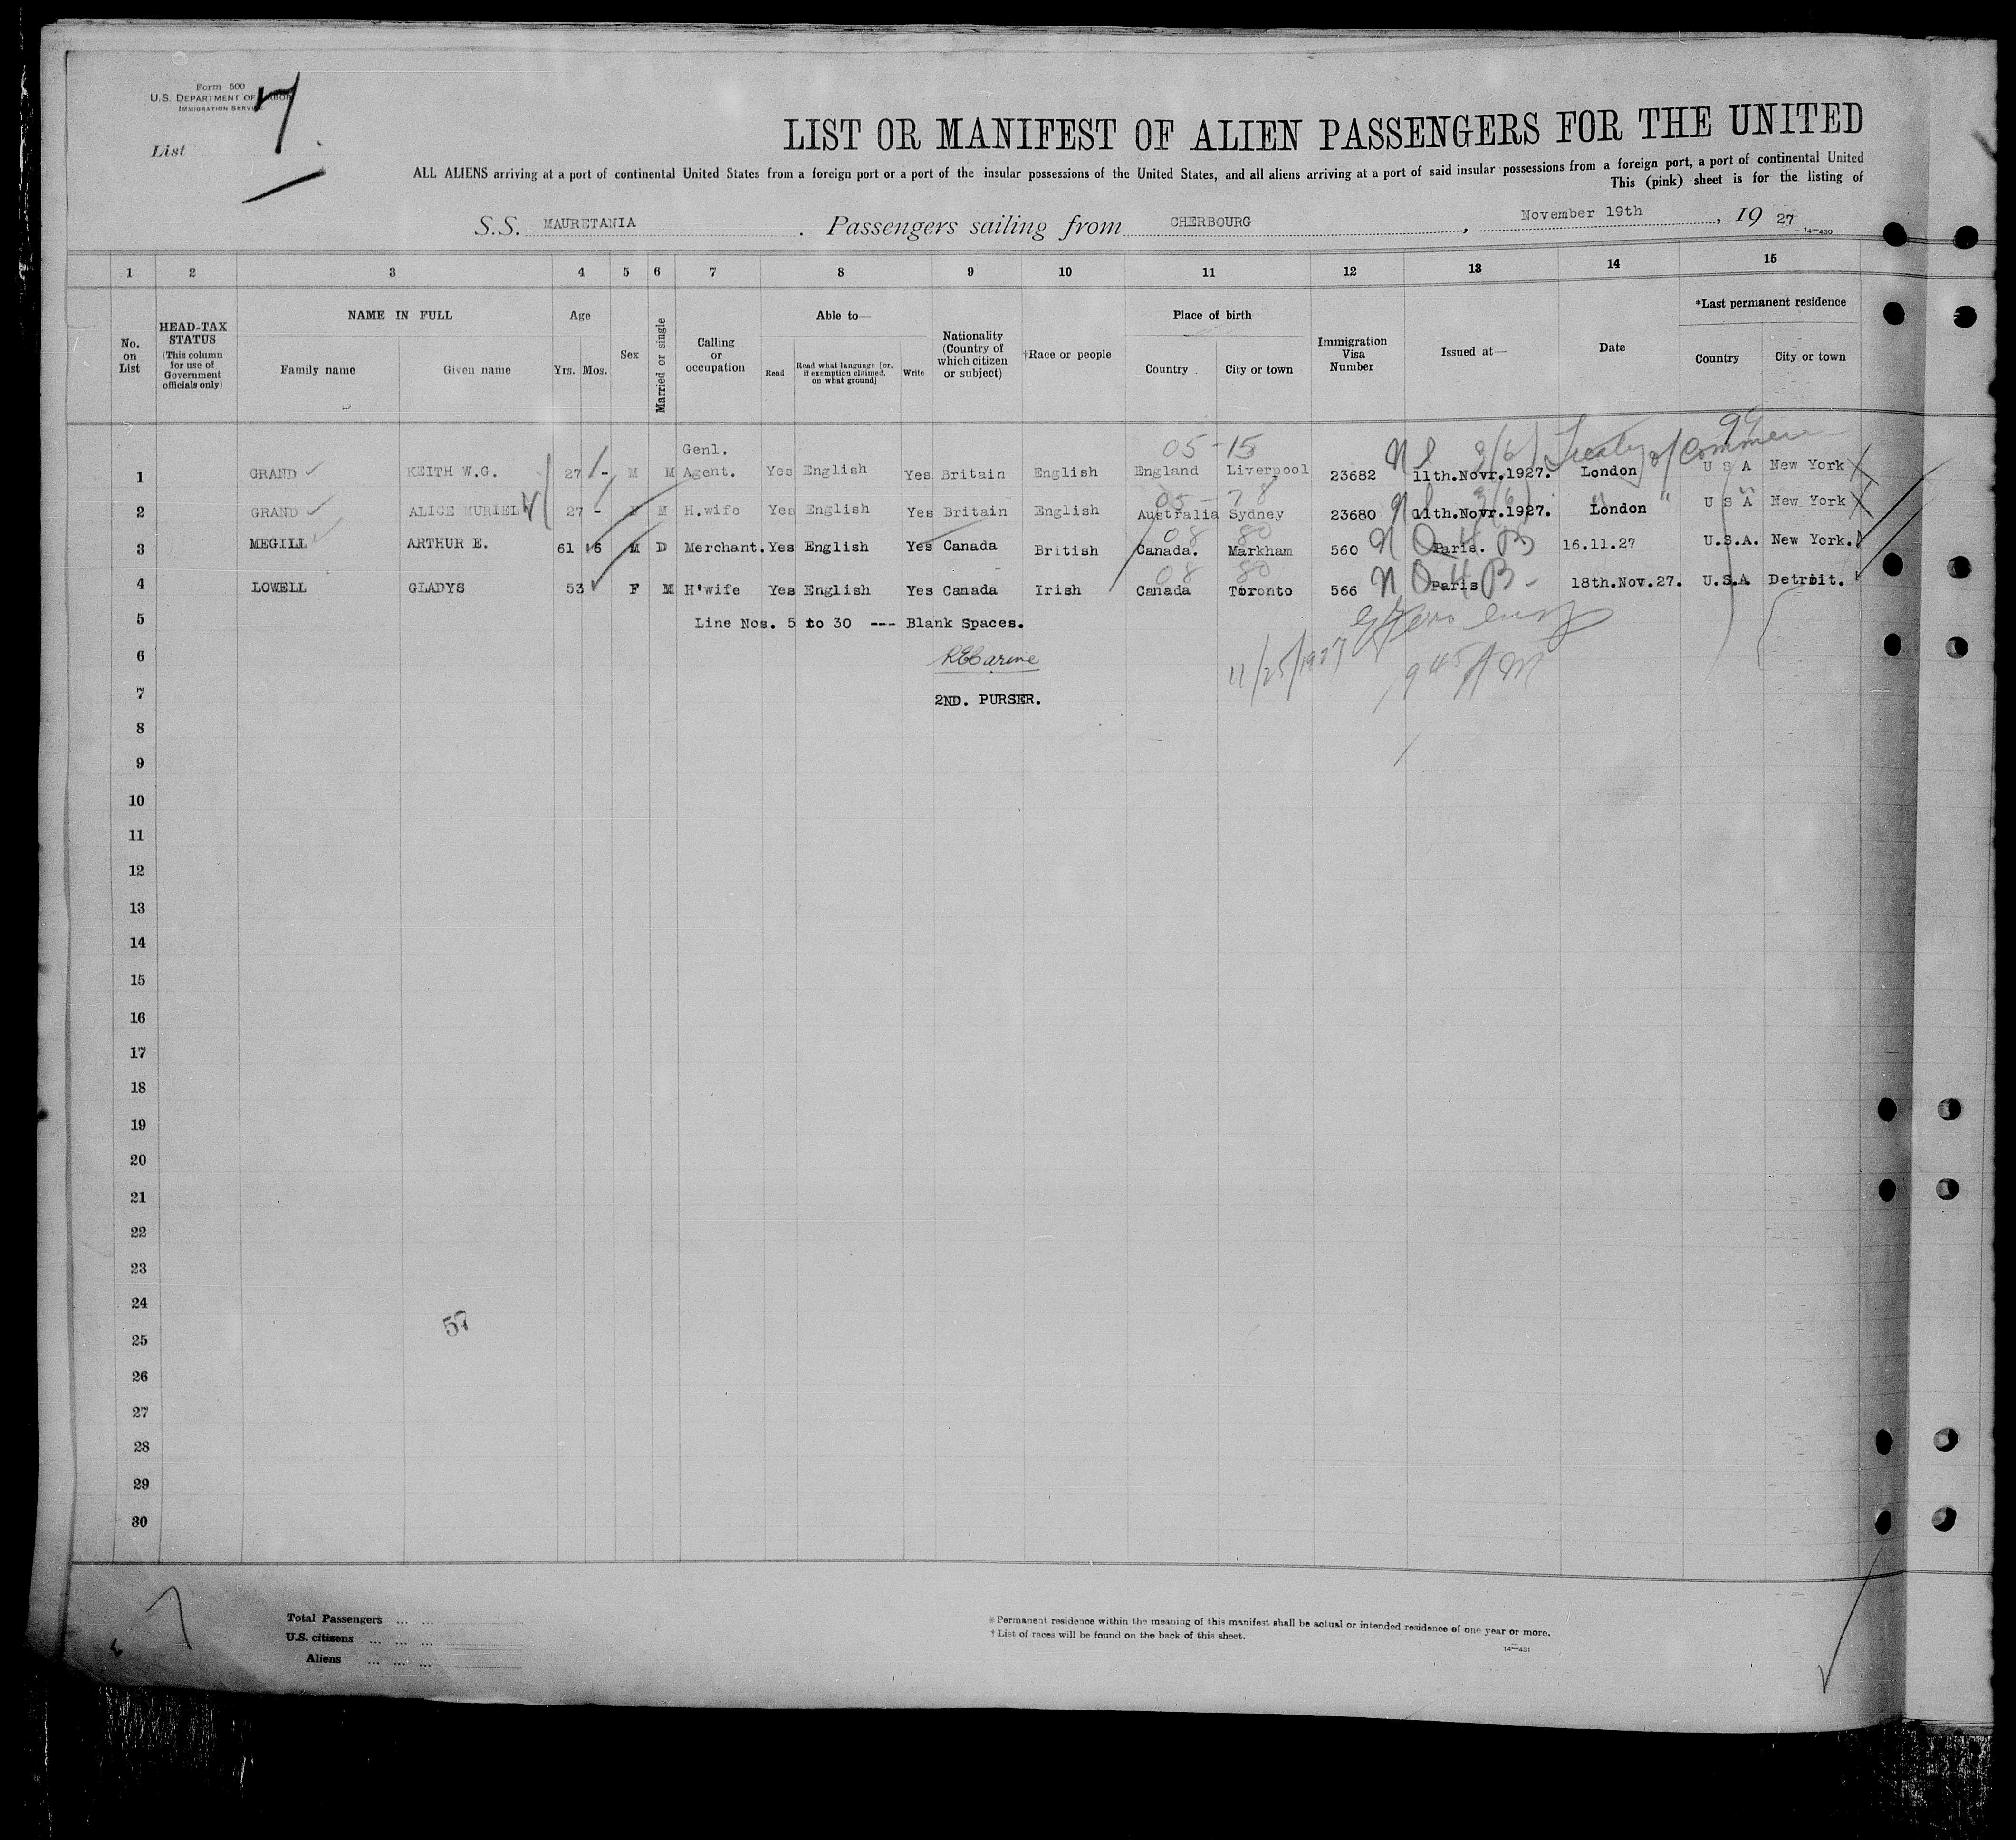 Form 500
U.S. DEPARTMENT OF LABOR
IMMIGRATION SERVICE
List 7
LIST OR MANIFEST OF ALIEN PASSENGERS FOR THE UNITED
ALL ALIENS arriving at a port of continental United States from a foreign port or a part of the insular possessions of the United States, and all aliens arriving at a port of said insular possessions from a foreign port, a port of continental United
This (pink) sheet is for the listing of
S.S. MAURETANIA . Passengers sailing from CHERBOURG , November 19th , 19 27
14—430
1 2 3 4 5 6 7 8 9 10 11 12 13 14 15
No. on List
HEAD-TAX STATUS (This column for use of Government officials only)
NAME IN FULL
Family name Given name
Age
Yrs. Mos.
Sex
Married or single
Calling or occupation
Able to—
Read Read what language [or, if exemption claimed, on what ground] Write
Nationality (Country of which citizen or subject)
†Race or people
Place of birth
Country City or town
Immigration Visa Number
Issued at—
Date
*Last permanent residence
Country City or town
05-15 Treaty of Commerce
1 GRAND KEITH W.G. 27 - M M Genl. Agent. Yes English Yes Britain English England Liverpool 23682 3(6) 11th.Novr.1927. London U S A New York
05-78
2 GRAND ALICE MURIEL 27 - F M H.wife Yes English Yes Britain English Australia Sydney 23680 3(6) 11th.Novr.1927. London " U S A New York
08 80
3 MEGILL ARTHUR E. 61 6 M D Merchant. Yes English Yes Canada British Canada. Markham 560 N Q 4 B Paris. 16.11.27 U.S.A. New York.
08 80
4 LOWELL GLADYS 53 F M H'wife Yes English Yes Canada Irish Canada Toronto 566 N Q 4 B Paris 18th.Nov.27. U.S.A Detroit.
5 Line Nos. 5 to 30 --- Blank Spaces.
6 11/25/1927 9 45 AM
7 2ND. PURSER.
8
9
10
11
12
13
14
15
16
17
18
19
20
21
22
23
24
57
25
26
27
28
29
30
7
Total Passengers ... ...
U.S. citizens ... ... ...
Aliens ... ... ...
* Permanent residence within the meaning of this manifest shall be actual or intended residence of one year or more.
† List of races will be found on the back of this sheet.
14—431